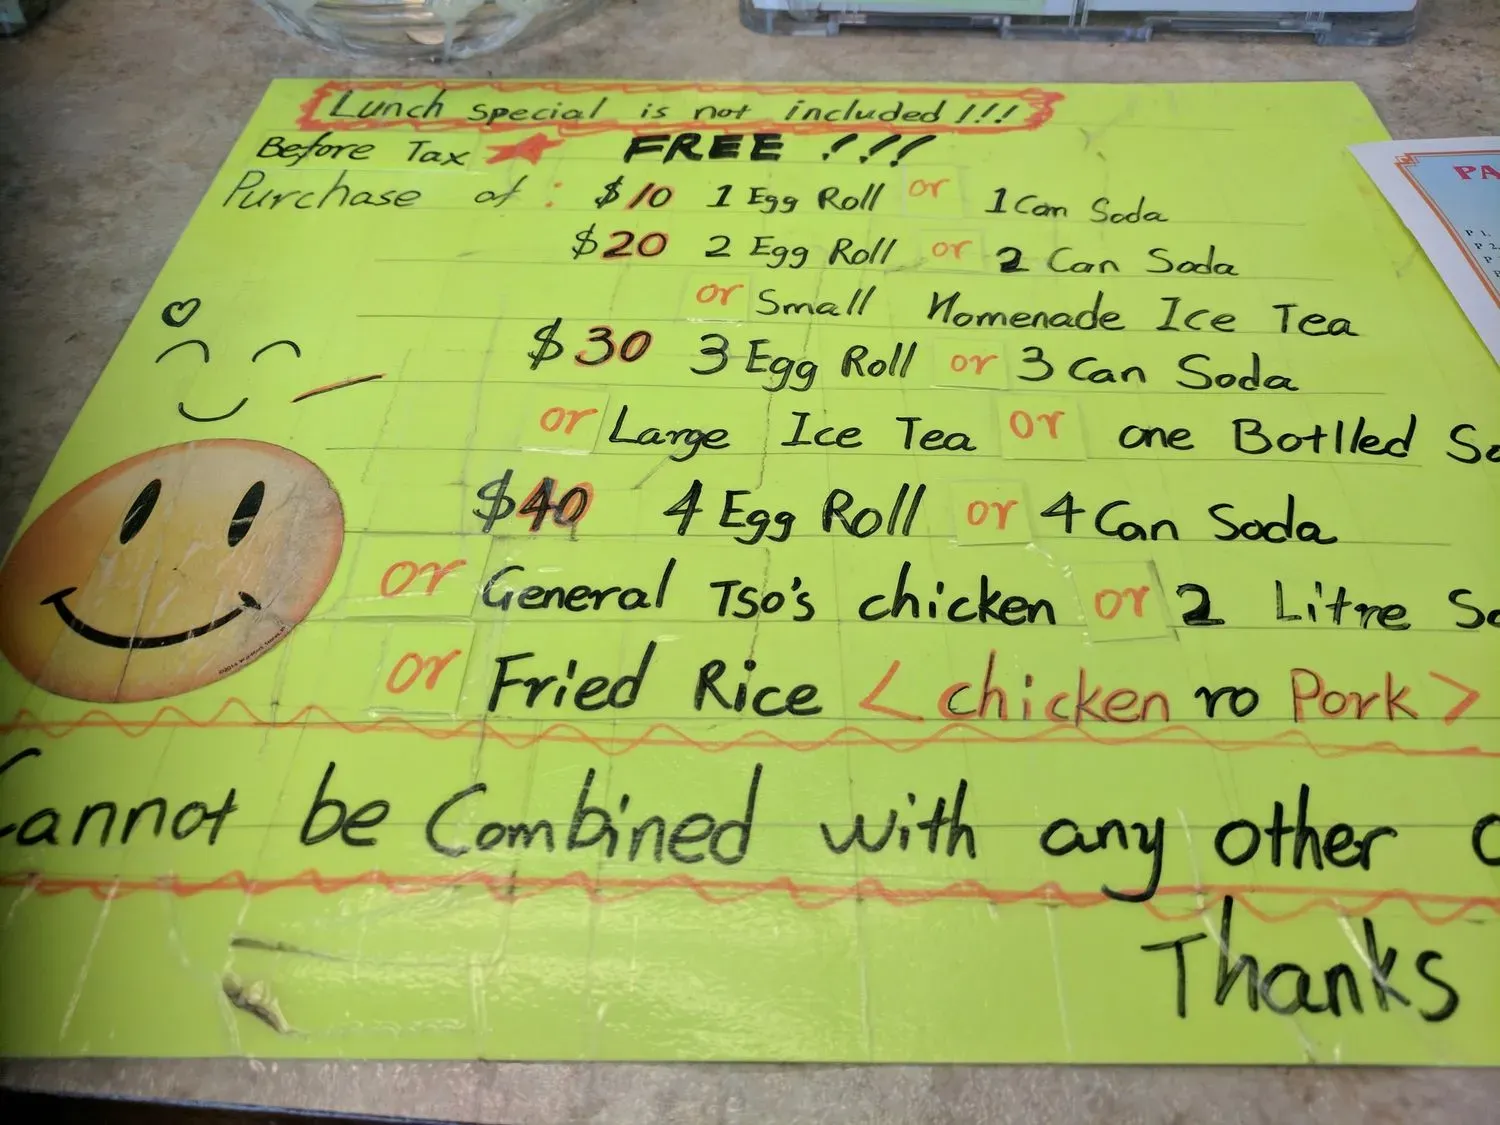 Lunch special is not included!!!
Before Tax FREE !!!
Purchase of: $10 1 Egg Roll or 1 Can Soda
$20 2 Egg Roll or 2 Can Soda
or Small Homenade Ice Tea
$30 3 Egg Roll or 3 Can Soda
or Large Ice Tea or one Botlled
$40 4 Egg Roll or 4 Can Soda
or General Tso's chicken or 2 Litre
or Fried Rice <chicken ro Pork>
Cannot be Combined with any other
Thanks
PA